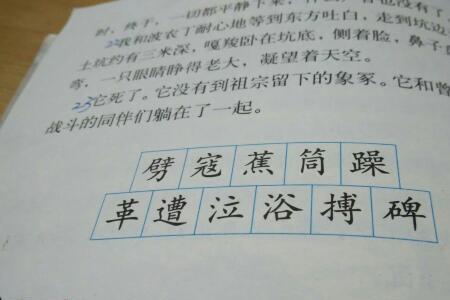 时，终于，一切都平静下来，
22我和波农丁耐心地等到东方吐白，走到坑边
土坑约有三米深，嘎羧卧在坑底，侧着脸，鼻子
弯，一只眼睛睁得老大，凝望着天空。
23它死了。它没有到祖宗留下的象冢。它和曾
战斗的同伴们躺在了一起。
劈寇蕉筒躁
革遭泣浴搏碑